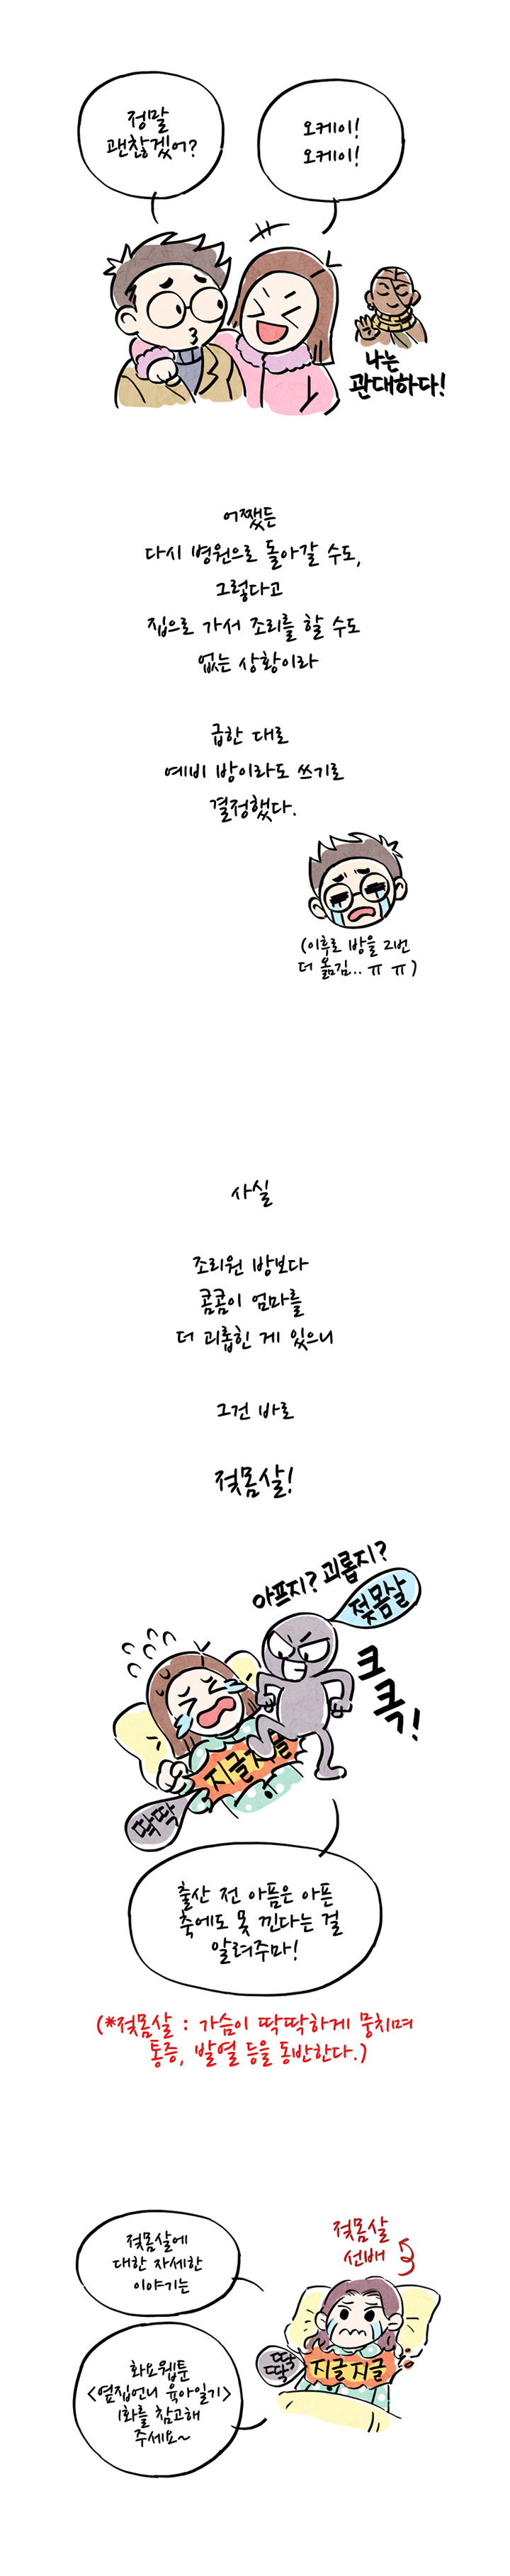 정말
괜찮겠어?
오케이!
오케이!
나는
관대하다!
어쨌든
다시 병원으로 돌아갈 수도,
그렇다고
집으로 가서 조리를 할 수도
없는 상황이라
급한 대로
예비 방이라도 쓰기로
결정했다.
(이후로 방을 2번
더 옮김.. ㅠ ㅠ)
사실
조리원 방보다
콤콤이 엄마를
더 괴롭힌 게 있으니
그건 바로
젖몸살!
아프지? 괴롭지?
젖몸살
크
큭!
지글지글
딱딱
출산 전 아픔은 아픈
축에도 못 낀다는 걸
알려주마!
(*젖몸살 : 가슴이 딱딱하게 뭉치며
통증, 발열 등을 동반한다.)
젖몸살에
대한 자세한
이야기는
젖몸살
선배
딱
딱
지글지글
화요웹툰
<옆집언니 육아일기>
1화를 참고해
주세요~